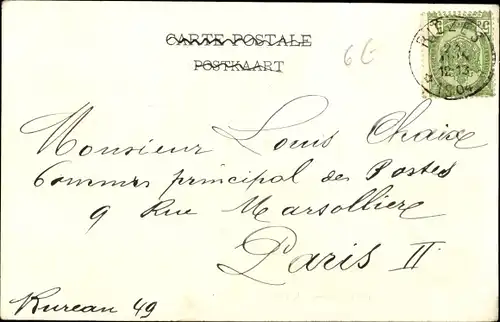 CARTE POSTALE
POSTKAART
6 E
Monsieur Louis Chaix
Commis principal des Postes
9 Rue Marsollier
Paris II
Bureau 49